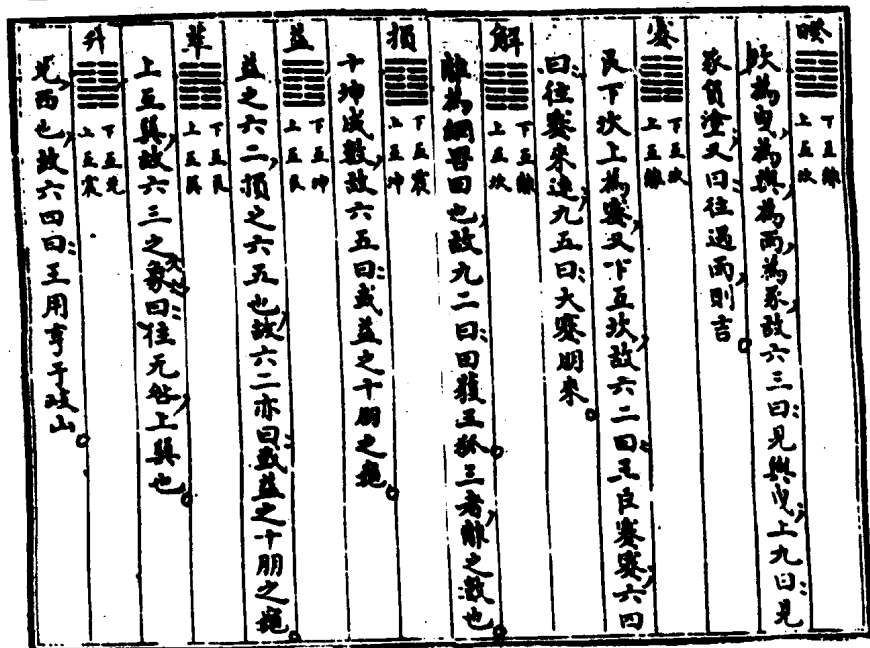 睽 ䷥ 下互離 上互坎
坎為曳,為輿,為雨,為豕,故六三曰:見輿曳,上九曰:見
豕負塗,又曰往遇雨則吉。
蹇 ䷦ 下互坎 上互離
艮下坎上為蹇,又下互坎,故六二曰:王臣蹇蹇,六四
曰:往蹇來連,九五曰:大蹇朋來。
解 ䷧ 下互離 上互坎
離為網罟田也,故九二曰:田獲三狐。三者,離之數也。
損 ䷨ 下互震 上互坤
十坤成數,故六五曰:或益之十朋之龜。
益 ䷩ 下互坤 上互艮
益之六二,損之六五也,故六二亦曰:或益之十朋之龜。
萃 ䷬ 下互艮 上互巽
上互巽,故六三之象曰:往无咎,上巽也。
升 ䷭ 下互兌 上互震
兌西也,故六四曰:王用亨于岐山。